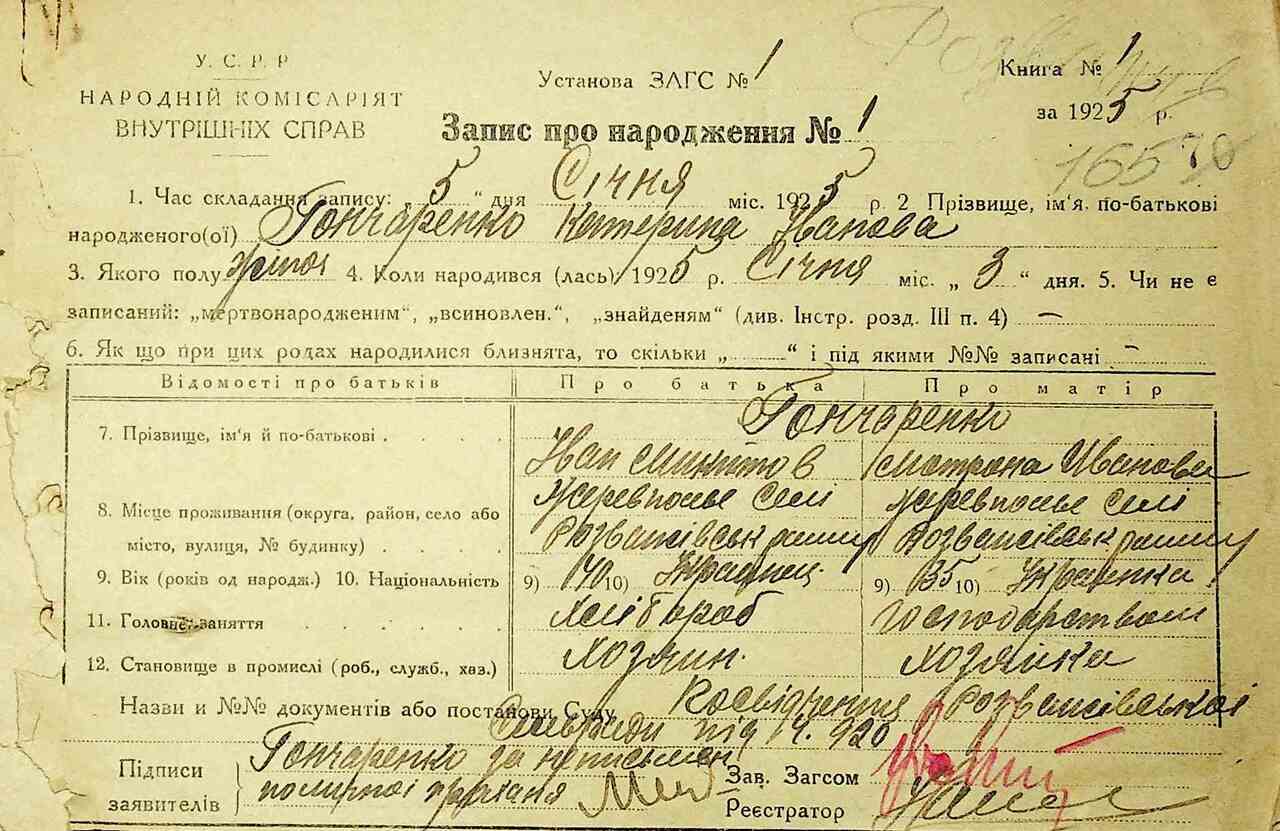 У. С. Р. Р
НАРОДНІЙ КОМІСАРІЯТ
ВНУТРІШНІХ СПРАВ
Установа ЗАГС № 1
Книга № 1
за 1925 р.
Запис про народження № 1
165 70
1. Час складання запису: „ 5 “ дня Січня міс. 1925 р. 2 Прізвище, ім'я. по-батькові
народженого(ої) Гончаренко Катерина Іванова
3. Якого полу жіноч 4. Коли народився (лась) 1925 р. Січня міс. „ 3 “ дня. 5. Чи не є
записаний: „мертвонародженим“, „всиновлен.“, „знайденям“ (див. Інстр. розд. III п. 4) —
6. Як що при цих родах народилися близнята, то скільки „ “ і під якими №№ записані —
Відомості про батьків Про батька Про матір
Гончаренко
7. Прізвище, ім'я й по-батькові . . . . . Іван Микитов Мотрона Иванова
8. Місце проживання (округа, район, село або селі селі
місто, вулиця, № будинку) . . . . .
9. Вік (років од народж.) 10. Національність 9) 40 10) Украинец 9) 35 10) Украинка
11. Головне заняття . . . . . Хлібороб Господарством
12. Становище в промислі (роб., служб., хаз.) Хозяин. Хозяйка
Назви и №№ документів або постанови Суду Посвідчення
Сільради під ч. 920
Підписи
заявителів
Гончаренко за неписьмен
Зав. Загсом
Реєстратор